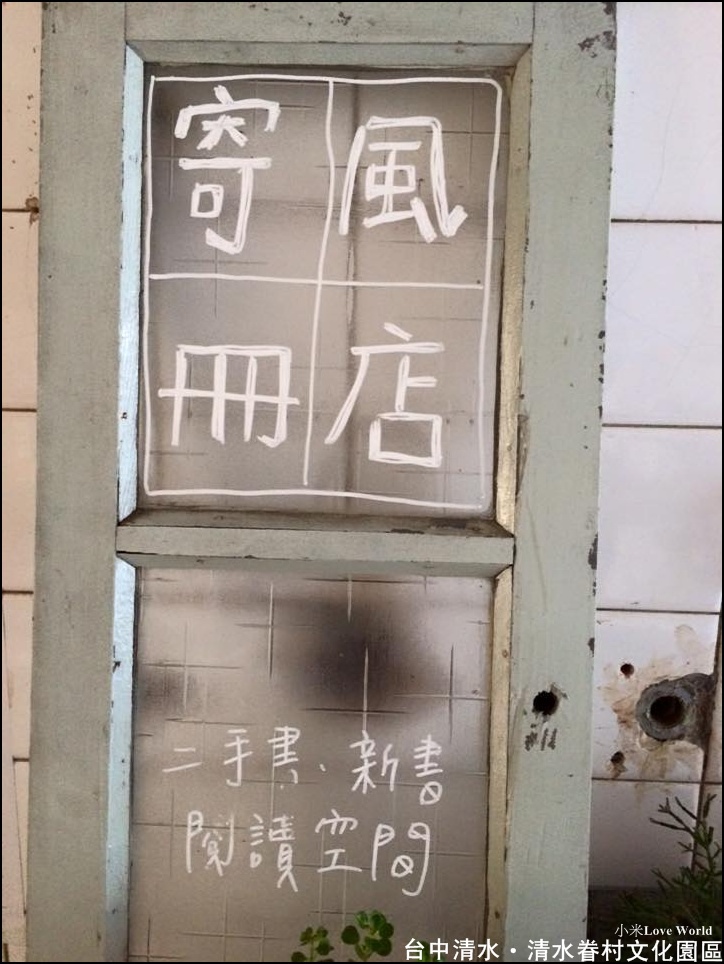 寄風
冊店
二手書、新書
閱讀空間
小米Love World
台中清水•清水眷村文化園區